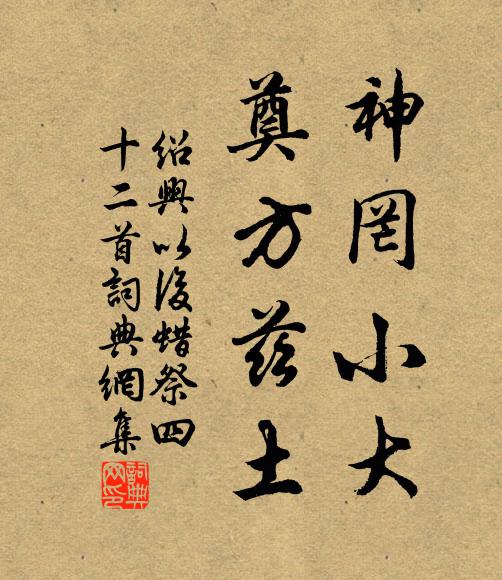 神罔小大
奠方茲土
紹興以後蜡祭四
十二首詞典網集
詞典網印